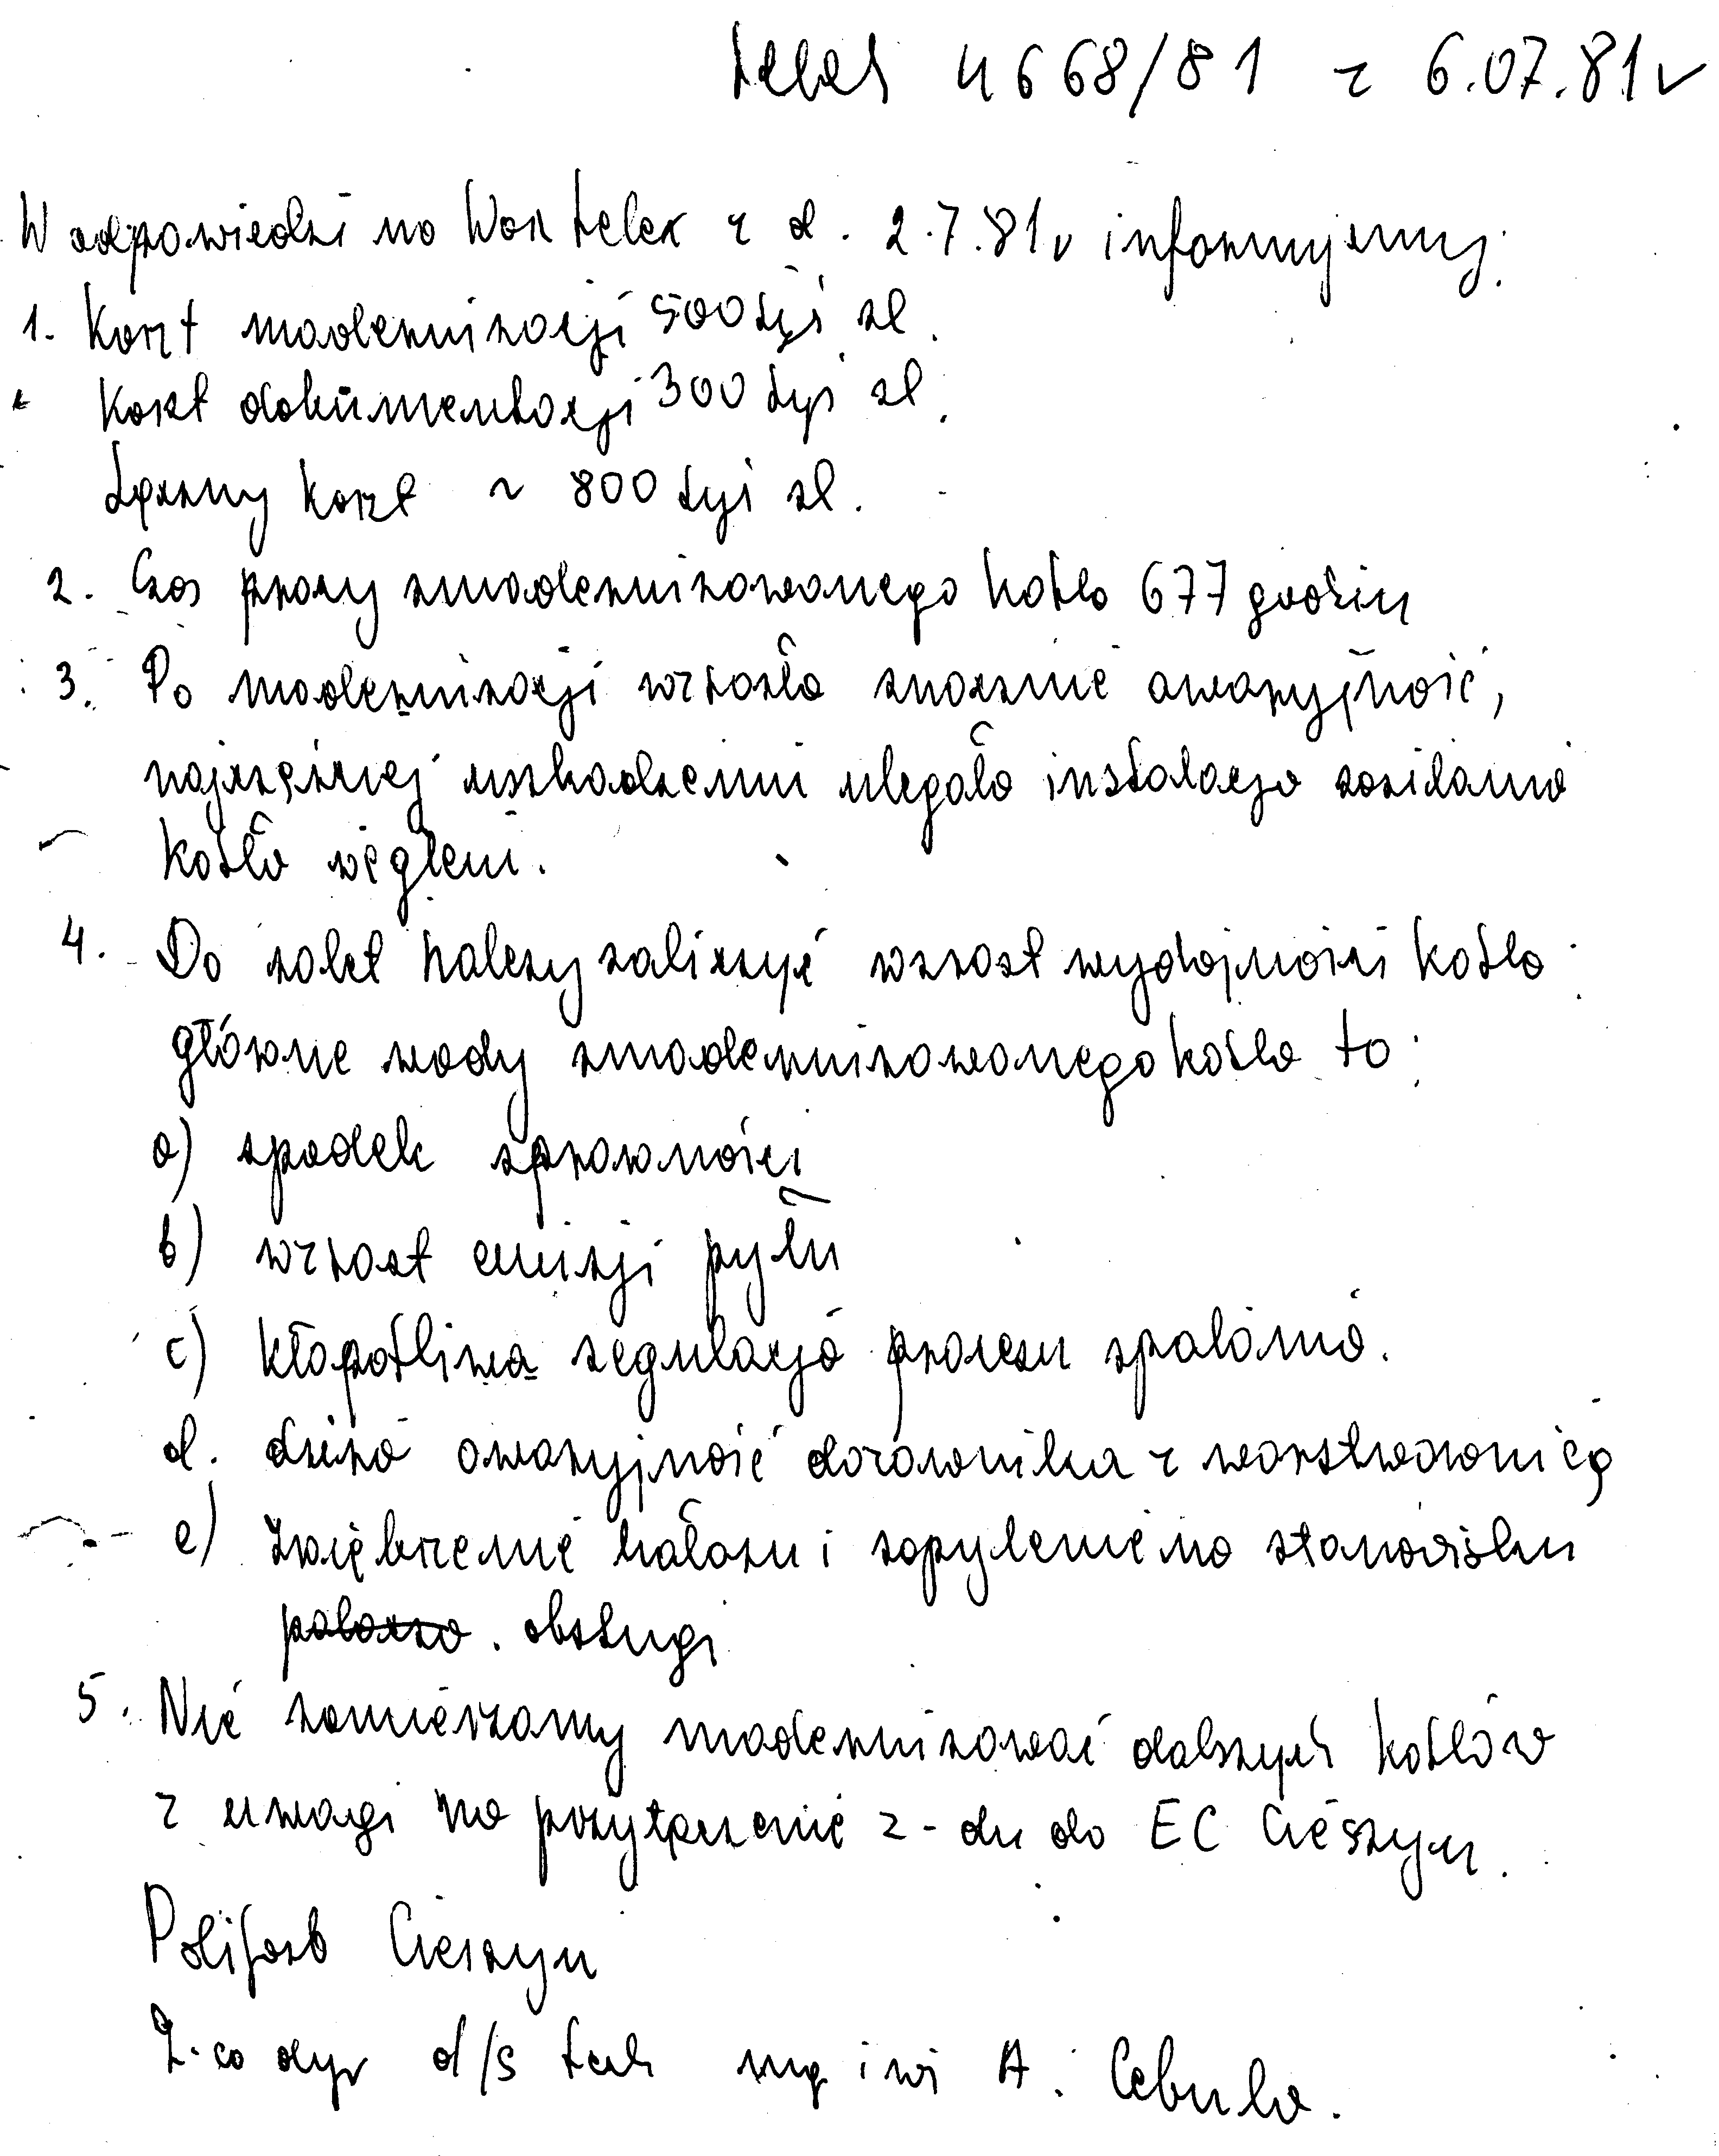 telex 4668/81 z 6.07.81r
W odpowiedzi na Wasz telex z d. 2.7.81r informujemy:
1. Koszt modernizacji 500 tyś zł.
Koszt dokumentacji 300 tyś zł.
Łączny koszt ~ 800 tyś zł.
2. Czas pracy zmodernizowanego kotła 677 godzin
3. Po modernizacji wzrosła znacznie awaryjność,
najczęściej uszkodzeniu ulegała instalacja zasilania
kotła węglem.
4. Do zalet należy zaliczyć wzrost wydajności kotła
główne wady zmodernizowanego kotła to:
a) spadek sprawności
b) wzrost emisji pyłu
c) kłopotliwa regulacja procesu spalania.
d. duża awaryjność dozownika z warstwownicą
e) zwiększenie hałasu i zapylenie na stanowisku
palacza. obsługi
5. Nie zamierzamy modernizować dalszych kotłów
z uwagi na przyłączenie z-du do EC Cieszyn.
Polifarb Cieszyn
Z-ca dyr d/s tech mgr inż A. Cebula.